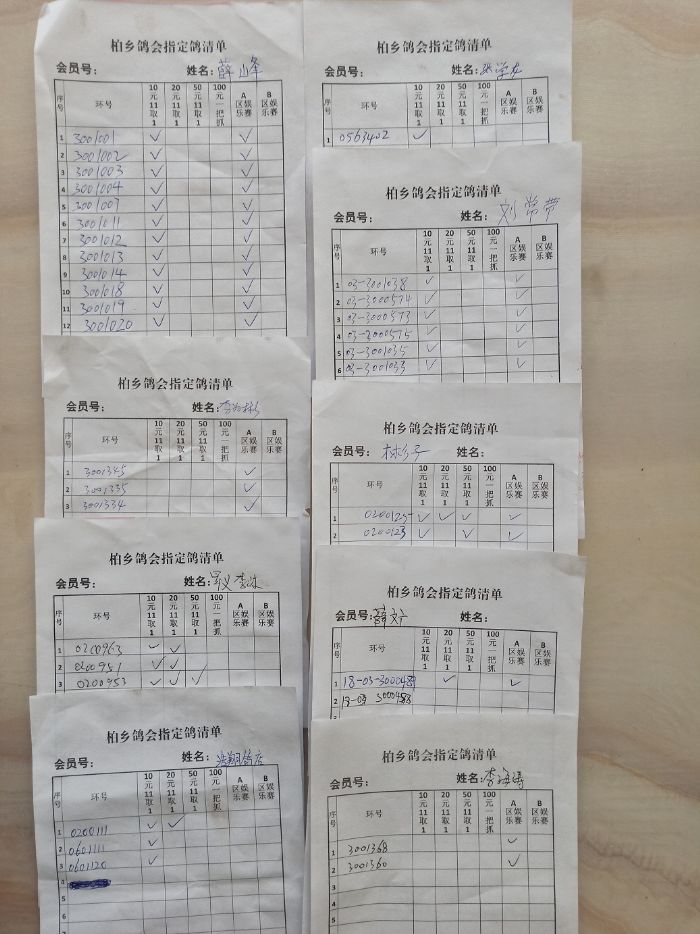 柏乡鸽会指定鸽清单
会员号： 姓名：薛峰
序号 环号 10元11取1 20元11取1 50元11取1 100元一把抓 A区娱乐赛 B区娱乐赛
1 3001001 ✓ ✓
2 3001002 ✓ ✓
3 3001003 ✓ ✓
4 3001004 ✓ ✓
5 3001007 ✓ ✓
6 3001011 ✓ ✓
7 3001012 ✓ ✓
8 3001013 ✓ ✓
9 3001014 ✓ ✓
10 3001018 ✓ ✓
11 3001019 ✓ ✓
12 3001020 ✓ ✓
柏乡鸽会指定鸽清单
会员号： 姓名：
序号 环号 10元11取1 20元11取1 50元11取1 100元一把抓 A区娱乐赛 B区娱乐赛
1 3001345 ✓
2 3001335 ✓
3 3001334 ✓
柏乡鸽会指定鸽清单
会员号： 姓名：
序号 环号 10元11取1 20元11取1 50元11取1 100元一把抓 A区娱乐赛 B区娱乐赛
1 0200963 ✓ ✓
2 0200951 ✓ ✓
3 0200953 ✓ ✓ ✓
柏乡鸽会指定鸽清单
会员号： 姓名：
序号 环号 10元11取1 20元11取1 50元11取1 100元一把抓 A区娱乐赛 B区娱乐赛
1 0200111 ✓ ✓
2 0601111 ✓
3 0601120 ✓
4
5
6
7
柏乡鸽会指定鸽清单
会员号： 姓名：
序号 环号 10元11取1 20元11取1 50元11取1 100元一把抓 A区娱乐赛 B区娱乐赛
1 0563402 ✓
柏乡鸽会指定鸽清单
会员号： 姓名：刘常带
序号 环号 10元11取1 20元11取1 50元11取1 100元一把抓 A区娱乐赛 B区娱乐赛
1 03-3001038 ✓ ✓
2 03-3000574 ✓ ✓
3 03-3000573 ✓ ✓
4 03-3000575 ✓ ✓
5 03-3001035 ✓ ✓
6 03-3001033 ✓ ✓
柏乡鸽会指定鸽清单
会员号： 姓名：
序号 环号 10元11取1 20元11取1 50元11取1 100元一把抓 A区娱乐赛 B区娱乐赛
1 0200125 ✓ ✓ ✓ ✓
2 0200123 ✓ ✓ ✓
柏乡鸽会指定鸽清单
会员号： 姓名：
序号 环号 10元11取1 20元11取1 50元11取1 100元一把抓 A区娱乐赛 B区娱乐赛
1 18-03-3000489 ✓ ✓
2 18-03 3000488
柏乡鸽会指定鸽清单
会员号： 姓名：李海涛
序号 环号 10元11取1 20元11取1 50元11取1 100元一把抓 A区娱乐赛 B区娱乐赛
1 3001368 ✓
2 3001360 ✓
3
4
5
6